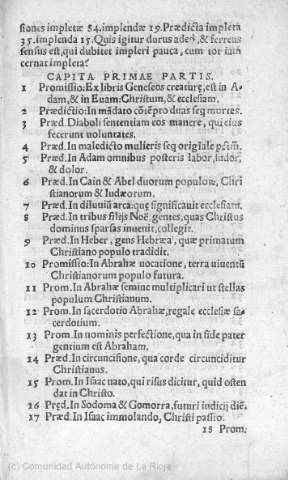 siones impletæ 54. implendæ 19. Prædicta impleta
35. implenda 15. Quis igitur durus adeò, & ferreus
sensus est, qui dubitet impleri pauca, cum tot iam
cernat impleta?
CAPITA PRIMAE PARTIS.
1 Promissio: Ex libris Geneseos creaturę, est in A-
dam, & in Euam: Christum, & ecclesiam.
2 Prædictio: In mãdato cõtẽpto duas seq mortes.
3 Præd. Diaboli sententiam eos manere, qui eius
fecerunt uoluntates.
4 Præd. In maledicto mulieris seq origiale pctm̃.
5 Præd. In Adam omnibus posteris labor, sudor,
& dolor.
6 Præd. In Cain & Abel duorum populorũ, Chri
stianorum & Iudæorum.
7 Præd. In diluuiũ arca, quę significauit ecclesiam.
8 Præd. In tribus filijs Noë, gentes, quas Christus
dominus sparsas inuenit, collegit.
9 Præd. In Heber, gens Hebræa, quæ primatum
Christiano populo tradidit.
10 Promissio: In Abrahæ uocatione, terra uiuentũ
Christianorum populo futura.
11 Prom. In Abrahæ semine multiplicari ut stellas
populum Christianum.
12 Prom. In sacerdotio Abrahæ, regale ecclesiæ sa-
cerdotium.
13 Prom. In nominis perfectione, qua in fide pater
gentium est Abraham.
14 Præd. In circuncisione, qua corde circunciditur
Christianus.
15 Prom. In Isaac nato, qui risus dicitur, quid osten
dat in Christo.
16 Pręd. In Sodoma & Gomorra, futuri iudicij diẽ.
17 Præd. In Isaac immolando, Christi passio.
18 Prom.
(c) Comunidad Autónoma de La Rioja